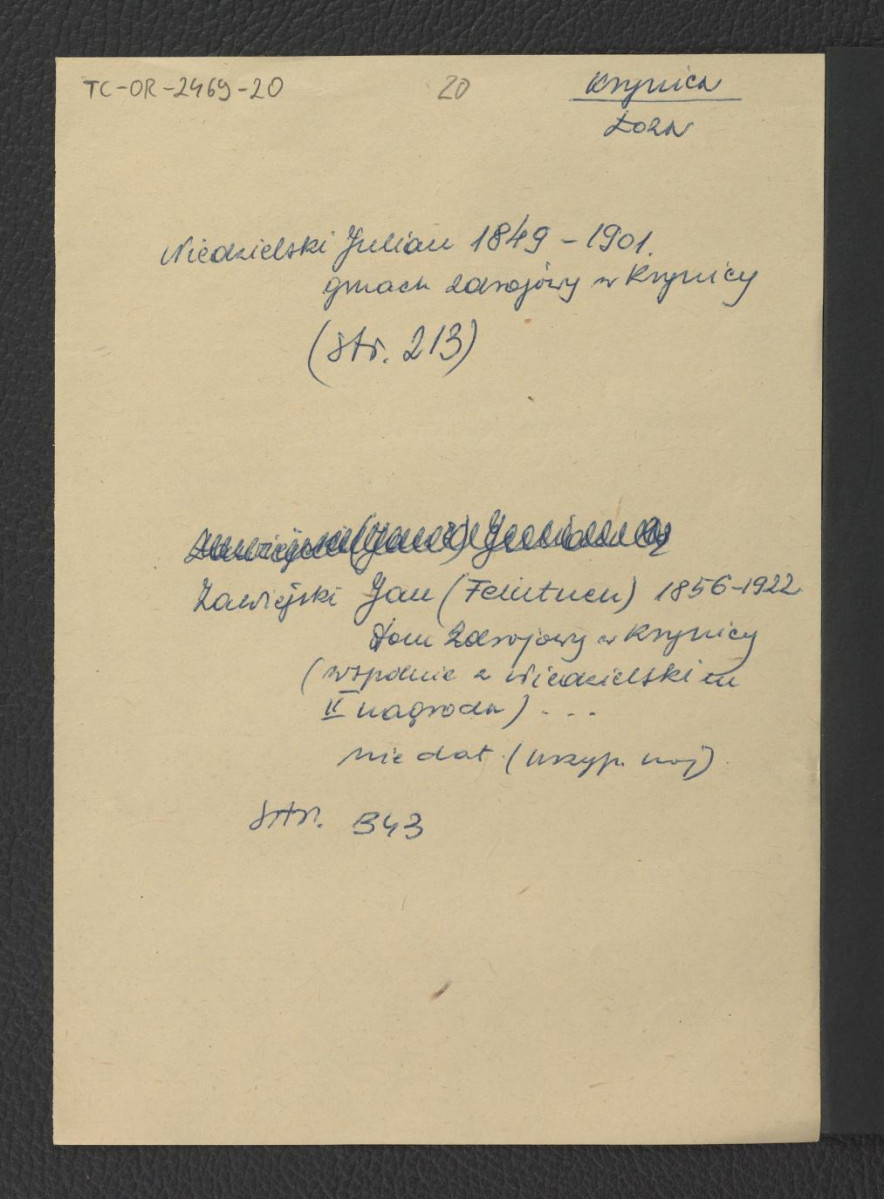 TC-OR-2469-20
20
Krynica
Łoza
Niedzielski Julian 1849 - 1901.
gmach zdrojowy w Krynicy
(str. 213)
Zawiejski Jan (Feintuch) 1856-1922
Dom Zdrojowy w Krynicy
(wspólnie z Niedzielskim
II nagroda) ...
nie dat. (przyp. mój)
Str. 343